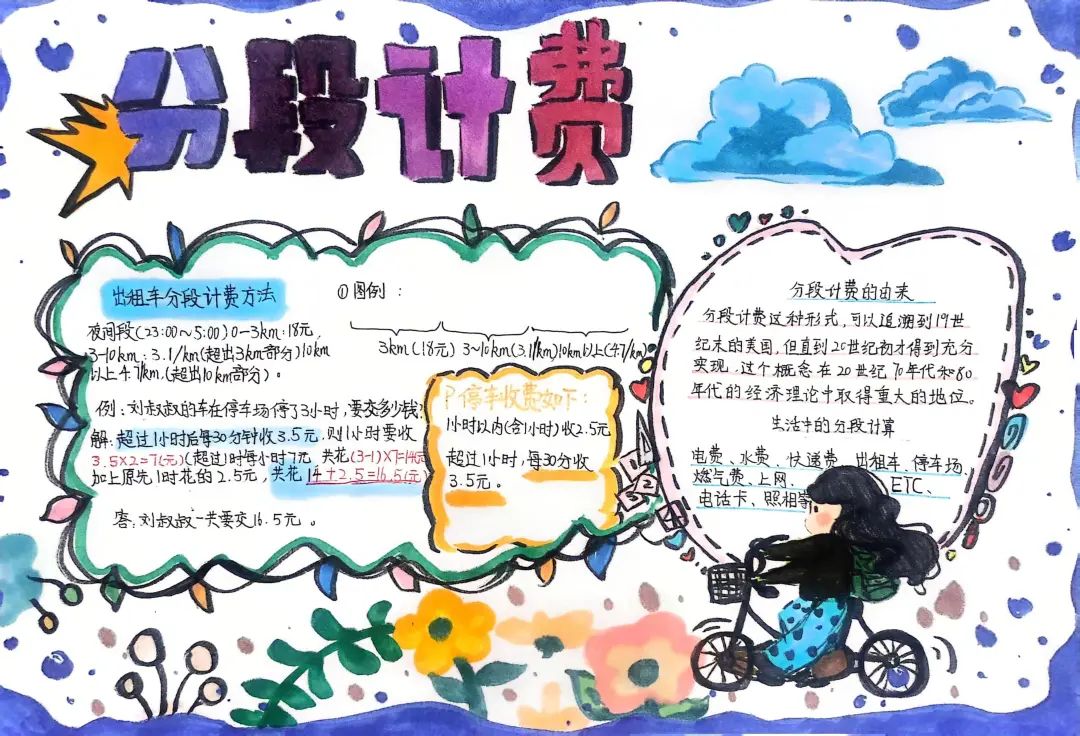 分段计费
出租车分段计费方法
夜间段(23:00~5:00)0-3km:18元,
3-10km:3.1/km(超出3km部分)10km
以上4.7/km.(超出10km部分)。
例:刘叔叔的车在停车场停了3小时,要交多少钱?
解:超过1小时后每30分钟收3.5元,则1小时要收
3.5×2=7(元)(超过1时每小时7元,共花(3-1)×7=14(元)
加上原先1时花的2.5元,共花14+2.5=16.5(元)
答:刘叔叔一共要交16.5元。
①图例:
3km(18元) 3~10km(3.1/km)10km以上(4.7/km)
P停车收费如下:
1小时以内(含1小时)收2.5元
超过1小时,每30分收
3.5元。
分段计费的由来
分段计费这种形式,可以追溯到19世
纪末的美国,但直到20世纪初才得到充分
实现,这个概念在20世纪70年代和80
年代的经济理论中取得重大的地位。
生活中的分段计算
电费、水费、快递费、出租车、停车场、
燃气费、上网、ETC、
电话卡、照相等